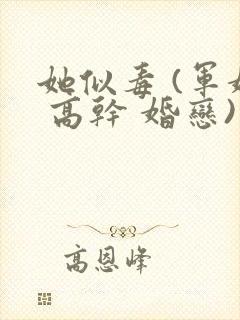 她似毒(軍
高幹 婚戀)
高恩峰